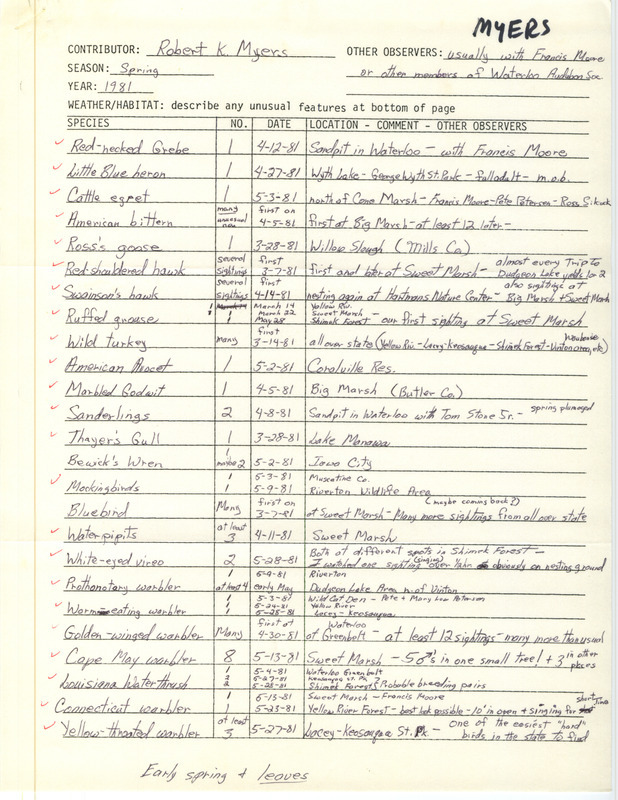 MYERS
CONTRIBUTOR: Robert K. Myers
OTHER OBSERVERS: usually with Francis Moore
or other members of Waterloo Audubon Soc
SEASON: Spring
YEAR: 1981
WEATHER/HABITAT: describe any unusual features at bottom of page
SPECIES NO. DATE LOCATION - COMMENT - OTHER OBSERVERS
Red-necked Grebe 1 4-12-81 Sandpit in Waterloo - with Francis Moore
Little Blue heron 1 4-27-81 Wyth Lake - George Wyth St. Park - full adult - m.o.b.
Cattle egret 1 5-3-81 north of Cone Marsh - Francis Moore - Pete Petersen - Ross Silcock
American bittern many unusual first on 4-5-81 first at Big Marsh - at least 12 later -
Ross's goose 1 3-28-81 Willow Slough (Mills Co.)
Red-shouldered hawk several sightings first 3-7-81 first and later at Sweet Marsh - almost every trip to Dudgeon Lake yields 1 or 2
Swainson's hawk several sightings first 4-14-81 nesting again at Hartmans Nature Center - also sightings at Big Marsh + Sweet Marsh
Ruffed grouse 1 1 1 March 14 March 22 May 28 Yellow Riv. Sweet Marsh Shimek Forest - our first sighting at Sweet Marsh
Wild turkey many first 3-14-81 all over state (Yellow Riv. - Lacey-Keosauqua - Shimek Forest - Vinton area, etc)
American Avocet 1 5-2-81 Coralville Res.
Marbled Godwit 1 4-5-81 Big Marsh (Butler Co.)
Sanderlings 2 4-8-81 Sandpit in Waterloo with Tom Stone Sr. - spring plumaged
Thayer's Gull 1 3-28-81 Lake Manawa
Bewick's Wren 1 maybe 2 5-2-81 Iowa City
Mockingbirds 1 1 5-3-81 5-9-81 Muscatine Co. Riverton Wildlife Area
Bluebird Many first on 3-7-81 at Sweet Marsh - Many more sightings from all over state (maybe coming back?)
Water pipits at least 3 4-11-81 Sweet Marsh
White-eyed vireo 2 5-28-81 Both at different spots in Shimek Forest -
I watched one (singing) sighting over 1/2 hr obviously on nesting ground
Prothonotary warbler 1 at least 4 5-9-81 early May Riverton Dudgeon Lake Area n. of Vinton
Worm-eating warbler 1 1 1 5-3-81 5-24-81 5-25-81 Wild Cat Den - Pete + Mary Lou Petersen Yellow River Lacey - Keosauqua
Golden-winged warbler Many first at 4-30-81 Waterloo at Greenbelt - at least 12 sightings - many more than usual
Cape May warbler 8 5-13-81 Sweet Marsh - 5 ♂'s in one small tree! + 3 in other places
Louisiana Waterthrush 1 2 2 5-4-81 5-27-81 5-28-81 Waterloo Greenbelt Keosauqua St. Pk. Shimek Forest } Probable breeding pairs
Connecticut warbler 1 1 5-13-81 5-23-81 Sweet Marsh - Francis Moore Yellow River Forest - best look possible - 10' in open + singing for short time
Yellow-throated warbler at least 3 5-27-81 Lacey-Keosauqua St. Pk. - one of the easiest "hard" birds in the state to find
Early spring + leaves